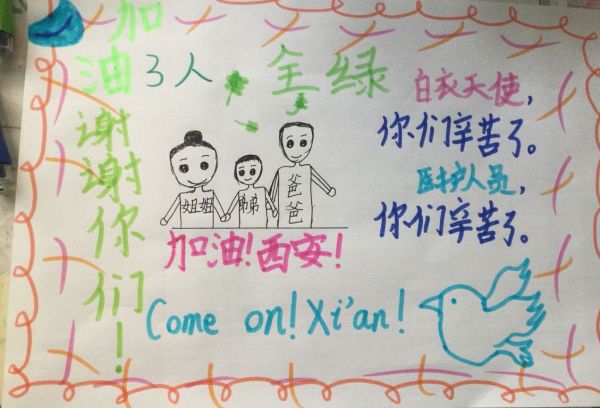 加油谢谢你们！
3人 全绿
白衣天使，
你们辛苦了。
医护人员，
你们辛苦了。
姐姐 弟弟 爸爸
加油！西安！
Come on! Xi'an!